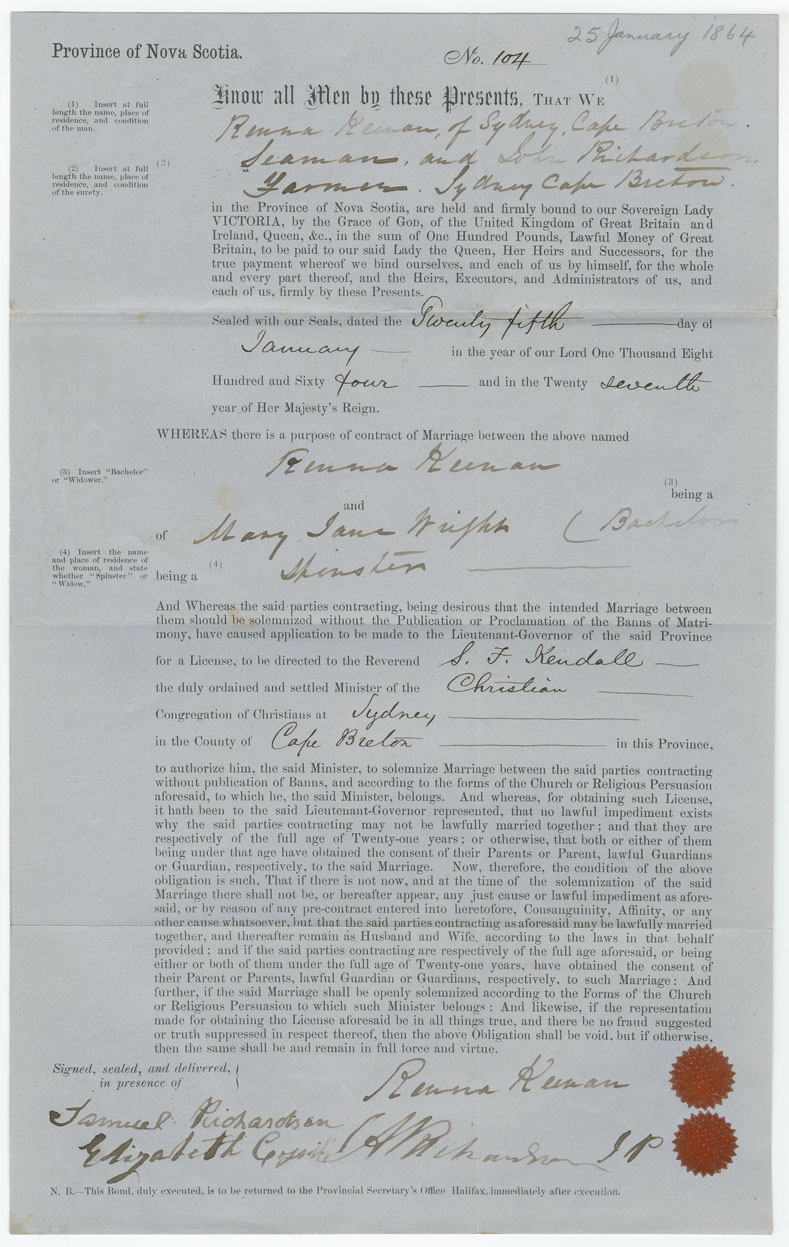 25 January 1864
Province of Nova Scotia.
No. 104
Know all Men by these Presents, THAT WE (1)
(1) Insert at full
length the name, place of
residence, and condition
of the man.
Renna Keenan, of Sydney, Cape Breton.
Seaman, and John Richardson
(2) Insert at full
length the name, place of
residence, and condition
of the surety.
(2)
Farmer. Sydney Cape Breton.
in the Province of Nova Scotia, are held and firmly bound to our Sovereign Lady
VICTORIA, by the Grace of GOD, of the United Kingdom of Great Britain and
Ireland, Queen, &c., in the sum of One Hundred Pounds, Lawful Money of Great
Britain, to be paid to our said Lady the Queen, Her Heirs and Successors, for the
true payment whereof we bind ourselves, and each of us by himself, for the whole
and every part thereof, and the Heirs, Executors, and Administrators of us, and
each of us, firmly by these Presents.
Sealed with our Seals, dated the Twenty fifth day of
January in the year of our Lord One Thousand Eight
Hundred and Sixty four and in the Twenty seventh
year of Her Majesty's Reign.
WHEREAS there is a purpose of contract of Marriage between the above named
Renna Keenan
(3) Insert "Bachelor"
or "Widower."
(3)
being a
and
of Mary Jane Wright (Bachelor
(4) Insert the name
and place of residence of
the woman, and state
whether "Spinster" or
"Widow."
being a (4) Spinster
And Whereas the said parties contracting, being desirous that the intended Marriage between
them should be solemnized without the Publication or Proclamation of the Banns of Matri-
mony, have caused application to be made to the Lieutenant-Governor of the said Province
for a License, to be directed to the Reverend S. F. Kendall
the duly ordained and settled Minister of the Christian
Congregation of Christians at Sydney
in the County of Cape Breton in this Province,
to authorize him, the said Minister, to solemnize Marriage between the said parties contracting
without publication of Banns, and according to the forms of the Church or Religious Persuasion
aforesaid, to which he, the said Minister, belongs. And whereas, for obtaining such License,
it hath been to the said Lieutenant-Governor represented, that no lawful impediment exists
why the said parties contracting may not be lawfully married together; and that they are
respectively of the full age of Twenty-one years; or otherwise, that both or either of them
being under that age have obtained the consent of their Parents or Parent, lawful Guardians
or Guardian, respectively, to the said Marriage. Now, therefore, the condition of the above
obligation is such, That if there is not now, and at the time of the solemnization of the said
Marriage there shall not be, or hereafter appear, any just cause or lawful impediment as afore-
said, or by reason of any pre-contract entered into heretofore, Consanguinity, Affinity, or any
other cause whatsoever, but that the said parties contracting as aforesaid may be lawfully married
together, and thereafter remain as Husband and Wife, according to the laws in that behalf
provided; and if the said parties contracting are respectively of the full age aforesaid, or being
either or both of them under the full age of Twenty-one years, have obtained the consent of
their Parent or Parents, lawful Guardian or Guardians, respectively, to such Marriage: And
further, if the said Marriage shall be openly solemnized according to the Forms of the Church
or Religious Persuasion to which such Minister belongs: And likewise, if the representation
made for obtaining the License aforesaid be in all things true, and there be no fraud suggested
or truth suppressed in respect thereof, then the above Obligation shall be void, but if otherwise,
then the same shall be and remain in full force and virtue.
Signed, sealed, and delivered,
in presence of
Renna Keenan
Samuel Richardson
Elizabeth Richardson J P
N. B.—This Bond, duly executed, is to be returned to the Provincial Secretary's Office Halifax, immediately after execution.